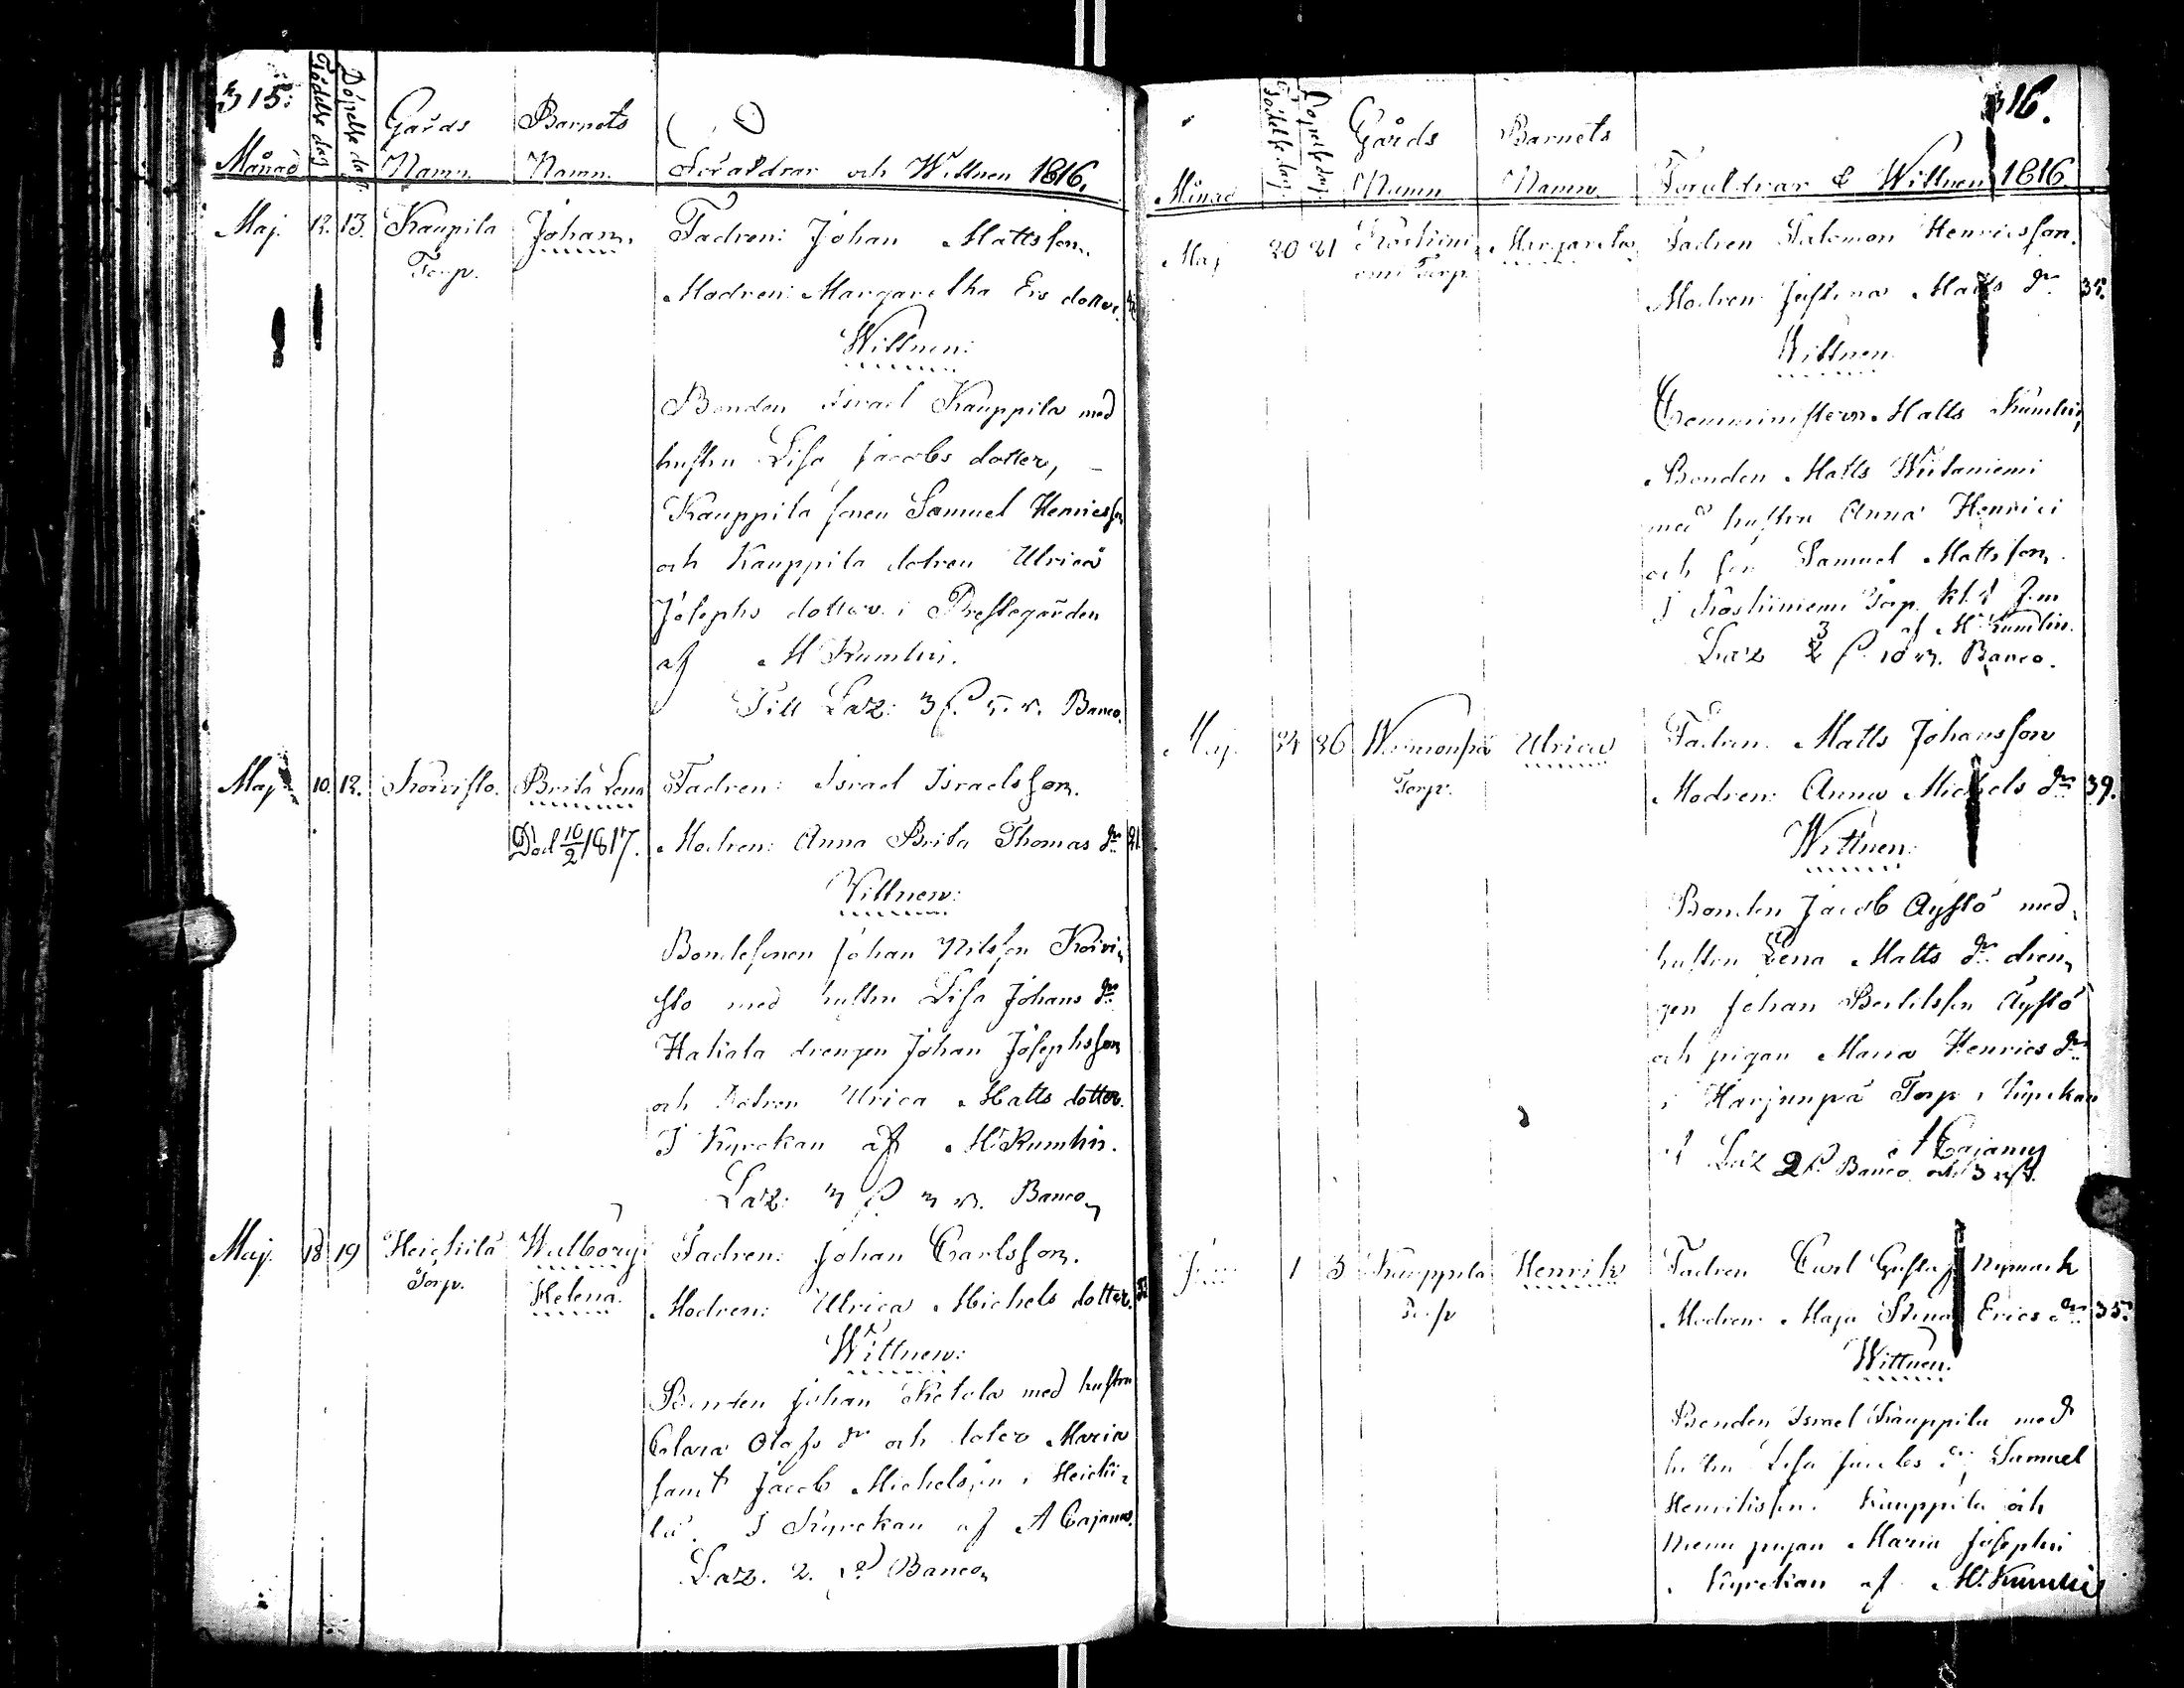 315:
Månad Födelse dag Döpelse dag Gårds Namn Barnets Namn. Föräldrar och Wittnen 1816.
Maj. 12. 13. Kaupila Johan. Fadren: Johan Mattsson.
Torp.
Modren: Margaretha Ers dotter.
Wittnen:
Bonden Israel Kauppila med
hustru Lisa Jacobs dotter,
Kauppila sonen Samuel Henricsson
och Kauppila dotren Ulrica
Josephs dotter i Prestegården
af M Kumlin.
Till Laz: 3 s. 5. r. Banco.
Maj 10. 12. Koivisto. Brita Lena Fadren: Israel Israelsson.
Död 10/2 1817. Modren: Anna Brita Thomas dr 21
Vittnen:
Bondesonen Johan Nilsson Koivi-
sto med hustru Lisa Johans dr
Hakala drengen Johan Josephsson
och dotren Ulrica Matts dotter.
I Kyrckan af M: Kumlin.
Laz: 3 s 3 r. Banco
Maj. 18 19 Heickilä Walborg Fadren: Johan Carlsson.
Torp. Helena. Modren: Ulrica Michels dotter.
Wittnen:
Bonden Johan Ketola med hustru
Clara Olofs dr och doter Maria
samt Jacob Michelsson i Heicki-
lä. I Kyrckan af A Cajanus.
Laz. 2. s Banco
316.
Månad Födelse dag Döpelse dag Gårds Namn Barnets Namn Föräldrar & Wittnen 1816.
Maj 20 21 Koskiini Margareta Fadren Salomon Henricsson.
emi Torp
Modren Justina Matts dr 35.
Wittnen
Comministern Matts Kumlin,
Bonden Matts Wiitaniemi
med hustru Anna Henrici
och son Samuel Mattsson
I Koskiiniemi Torp
af M Kumlin.
Laz 3 s. 10 r. Banco.
Maj. 24 26 Ulrica Fadren. Matts Johansson
Torp. Modren: Anna Michels dr 39.
Wittnen:
Bonden Jacob Äystö med
hustru Lena Matts dr dren-
gen Johan Bertilsson Äystö
och pigan Maria Henrics dr
i Harjunpä Torp i Kyrckan
af A Cajanus
Laz 2 s. Banco
Juni 1 3 Kauppila Henrik Fadren Carl Gustaf Nymark
Torp Modren: Maja Stina Erics dr 35.
Wittnen:
Bonden Israel Kauppila med
hustru Lisa Jacobs dr, Samuel
Henriksson Kauppila och
Niemi pigan Maria Josephi
i Kyrckan af M. Kumlin